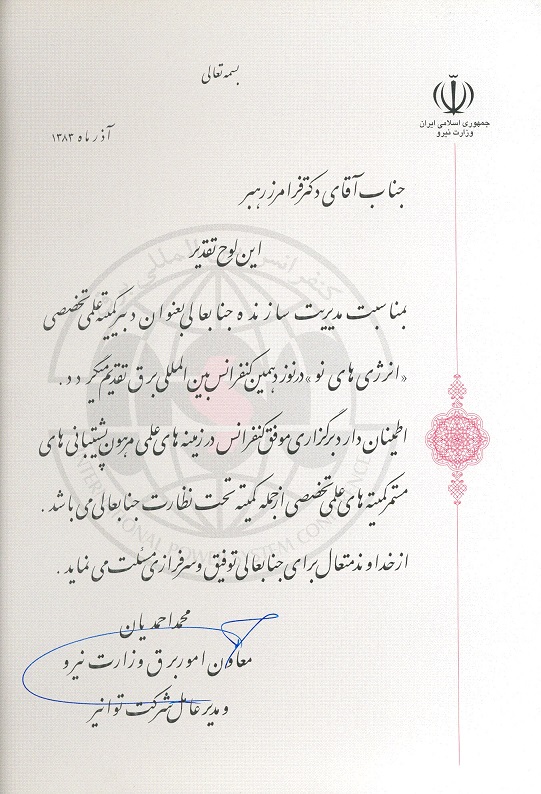 بسمه تعالی
جمهوری اسلامی ایران
وزارت نیرو
آذر ماه ۱۳۸۳
جناب آقای دکتر فرامرز رهبر
این لوح تقدیر
بمناسبت مدیریت سازنده جنابعالی بعنوان دبیر کمیته علمی تخصصی
«انرژی های نو» در نوزدهمین کنفرانس بین المللی برق تقدیم میگردد.
اطمینان دارد برگزاری موفق کنفرانس در زمینه های علمی مرهون پشتیبانی های
مستمر کمیته های علمی تخصصی از جمله کمیته تحت نظارت جنابعالی می باشد.
از خداوند متعال برای جنابعالی توفیق و سرفرازی مسئلت می نماید.
محمد احمدیان
معاون امور برق وزارت نیرو
و مدیر عامل شرکت توانیر
کنفرانس بین المللی برق
INTERNATIONAL POWER SYSTEM CONFERENCE